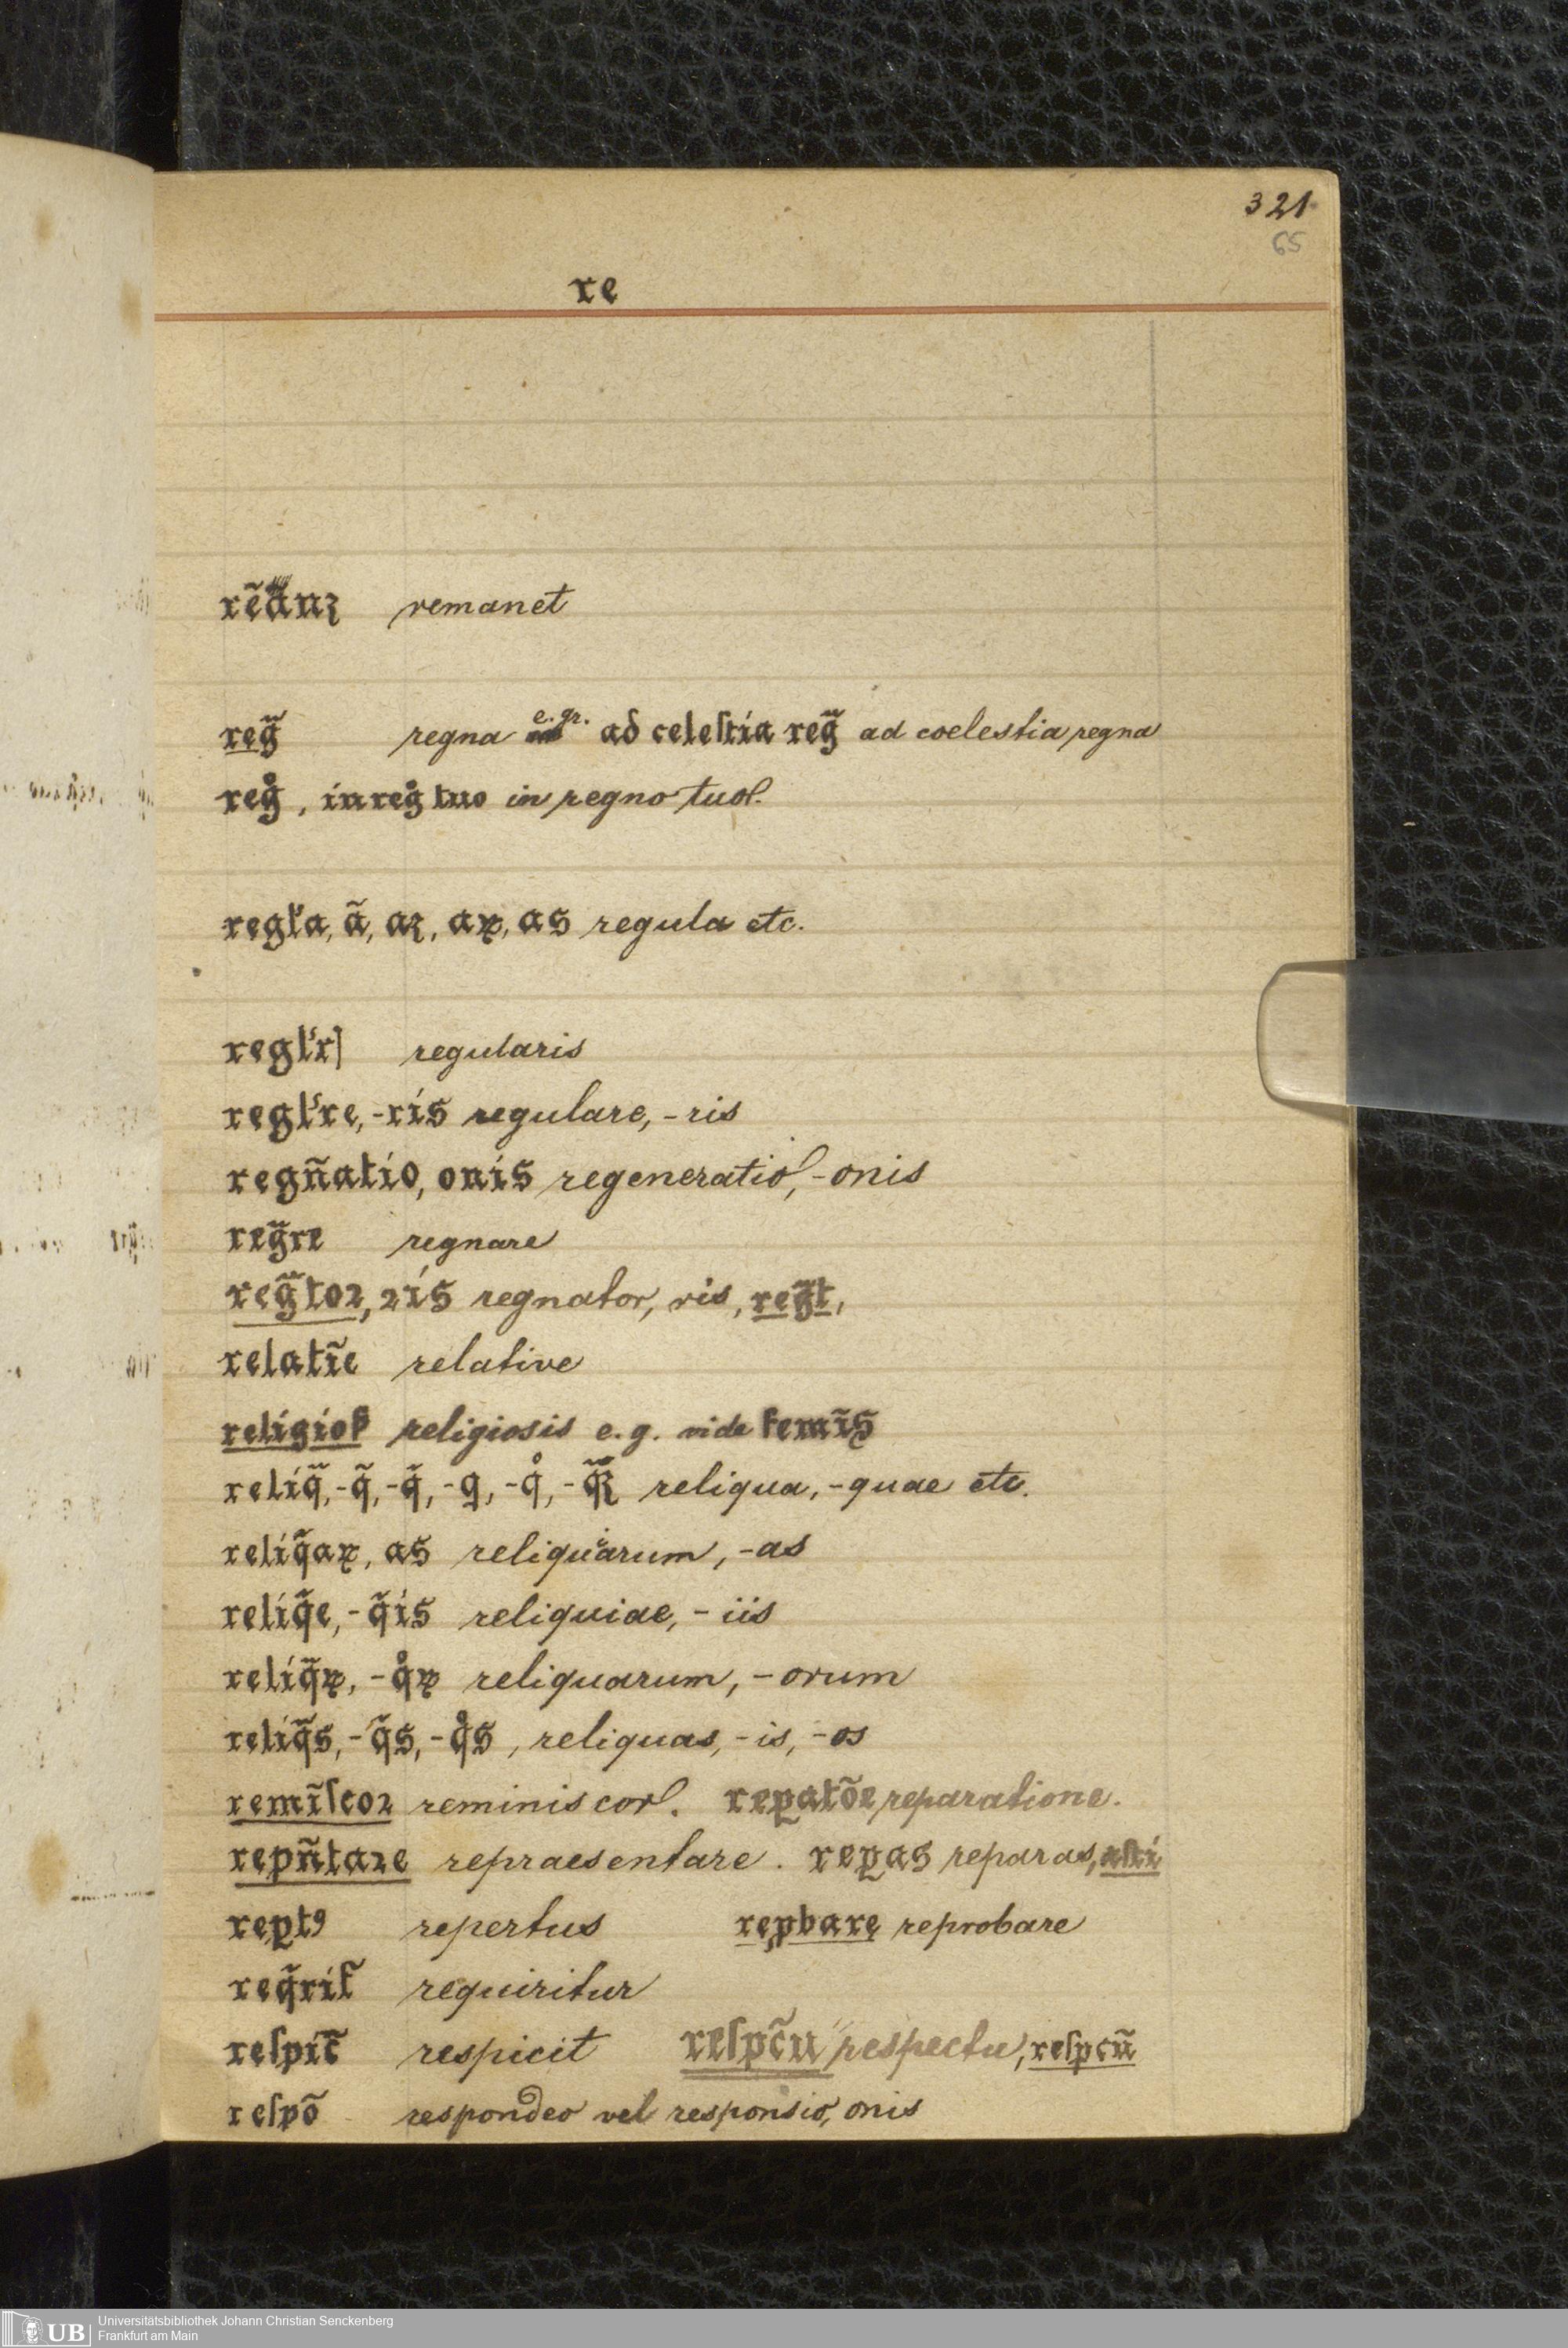 321
65
re
rẽãnꝫ remanet
reg̃ regna e.gr. ad celeſtia reg̃ ad coelestia regna
reg̊, in reg̊ tuo in regno tuo.
regl'a, ã, aꝫ, aꝝ, as regula etc.
regl'r] regularis
regl're, -ris regulare, -ris
regñatio, onis regeneratio, -onis
reg̃re regnare
reg̃toꝛ, ꝛis regnator, ris, reg̃t,
relatĩe relative
religioſ̃ religiosis e.g. vide femĩs
reliq̃, -q̃, -q̃, -q, -q̊, -q̃ꝝ reliqua, -quae etc.
reliq̃aꝝ, as reliquiarum, -as
reliq̃e, -q̃is reliquiae, -iis
reliq̃ꝝ, -q̊ꝝ reliquarum, -orum
reliq̃s, -q̃s, -q̊s, reliquas, -is, -os
remĩſcoꝛ reminiscor. reꝑatõe reparatione.
repñtaꝛe repraesentare. reꝑas reparas,
reꝑtꝰ repertus reꝓbare reprobare
req̃rit̃ requiritur
reſpic̃ respicit reſpc̃u respectu, reſpcũ
reſpõ respondeo vel responsio, onis
Universitätsbibliothek Johann Christian Senckenberg
UB Frankfurt am Main